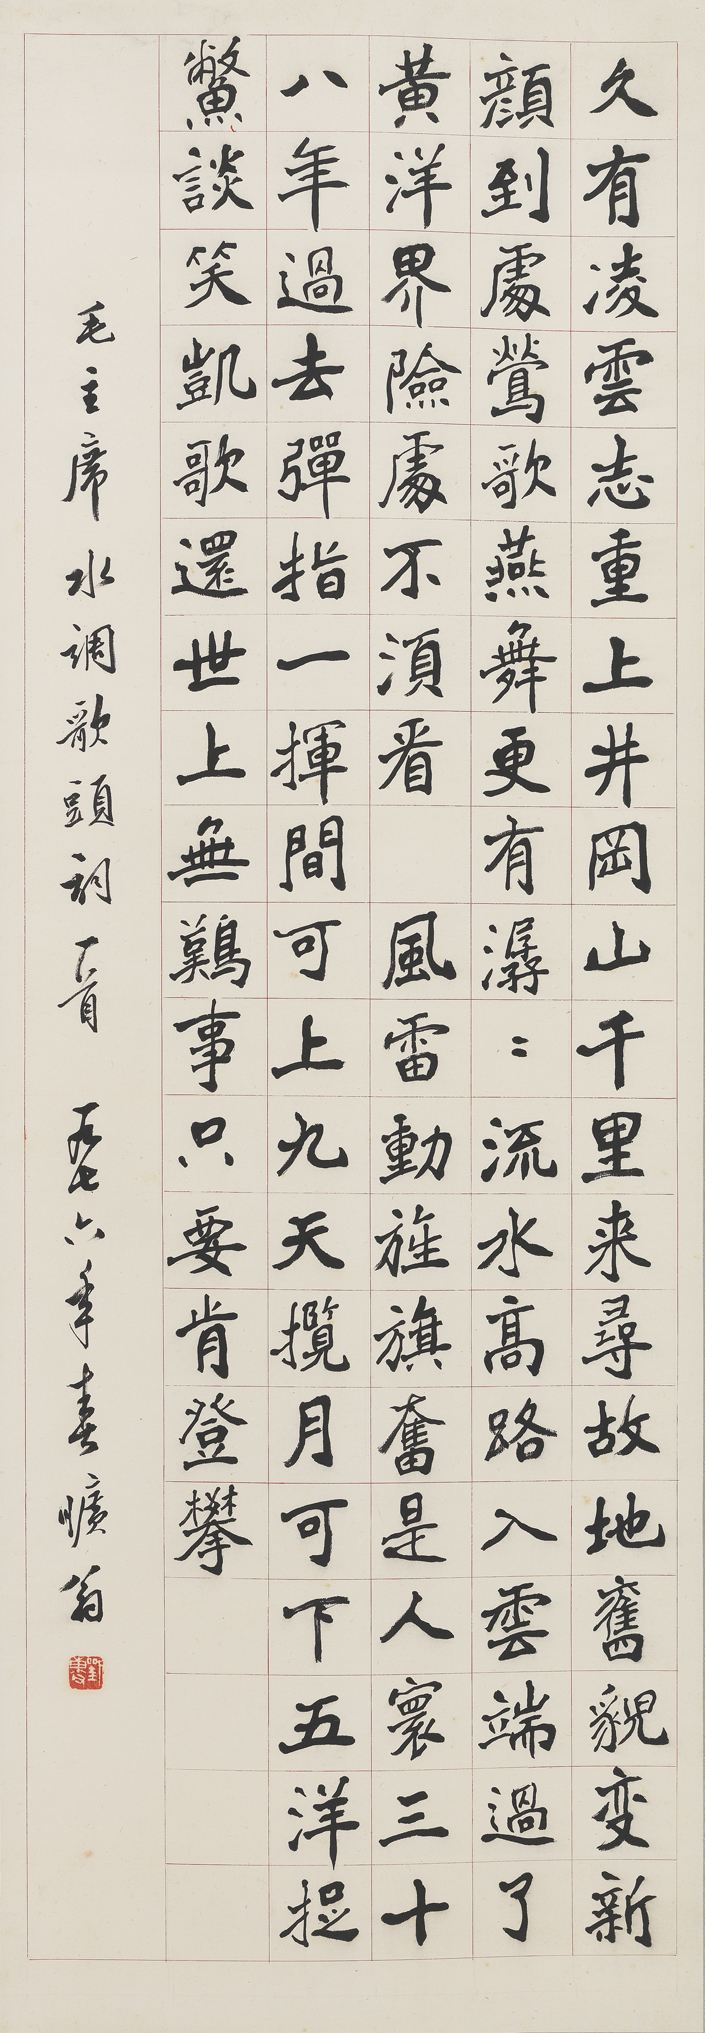 久有凌雲志重上井岡山千里来尋故地舊貌变新
顔到處鶯歌燕舞更有潺〻流水高路入雲端過了
黃洋界險處不須看 風雷動旌旗奮是人寰三十
八年過去彈指一揮間可上九天攬月可下五洋捉
鱉談笑凱歌還世上無難事只要肯登攀
毛主席水調歌頭詞一首 一九七六年春曠翁